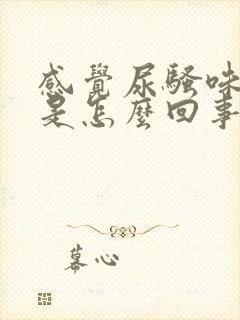 感覺尿騷味
是怎麼回事
慕心